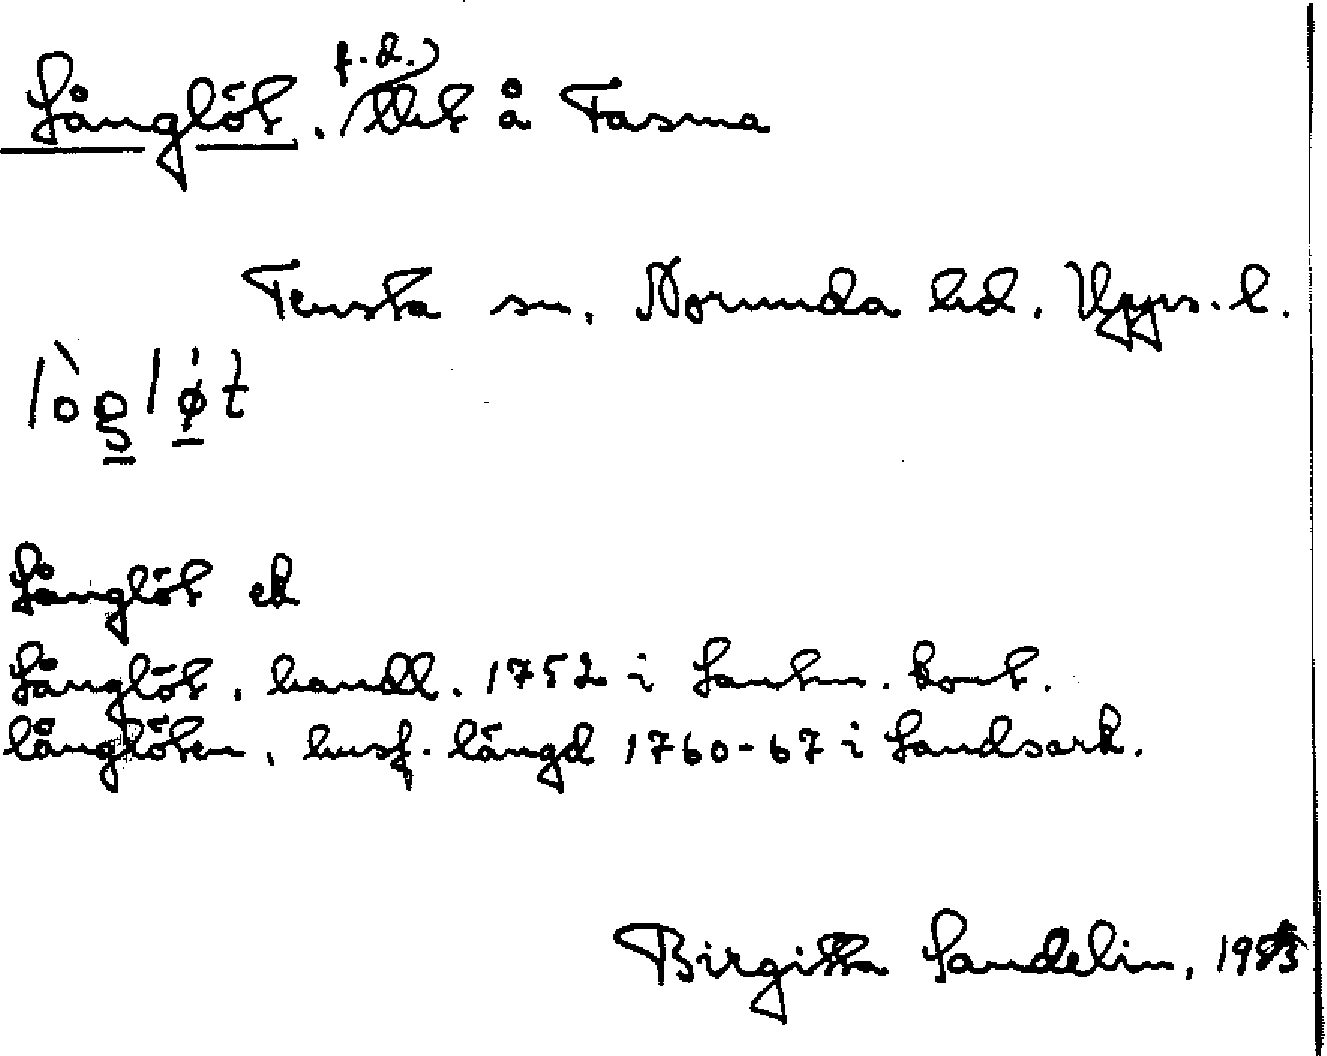 Långlöt, f.d. lht å Tasma
Tensta sn, Norunda hd. Upps. l.
Långlöt ek
Långlöt, handl. 1752 i Lantm. kont.
långlöten, husf. längd 1760-67 i Landsark.
Birgitta Sandelin,